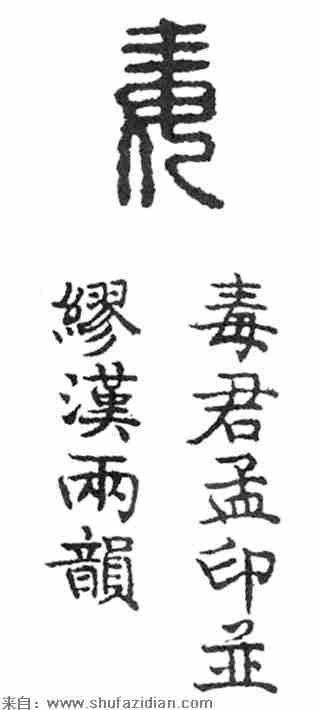 毒君孟印並
繆漢兩韻
来自：www.shufazidian.com